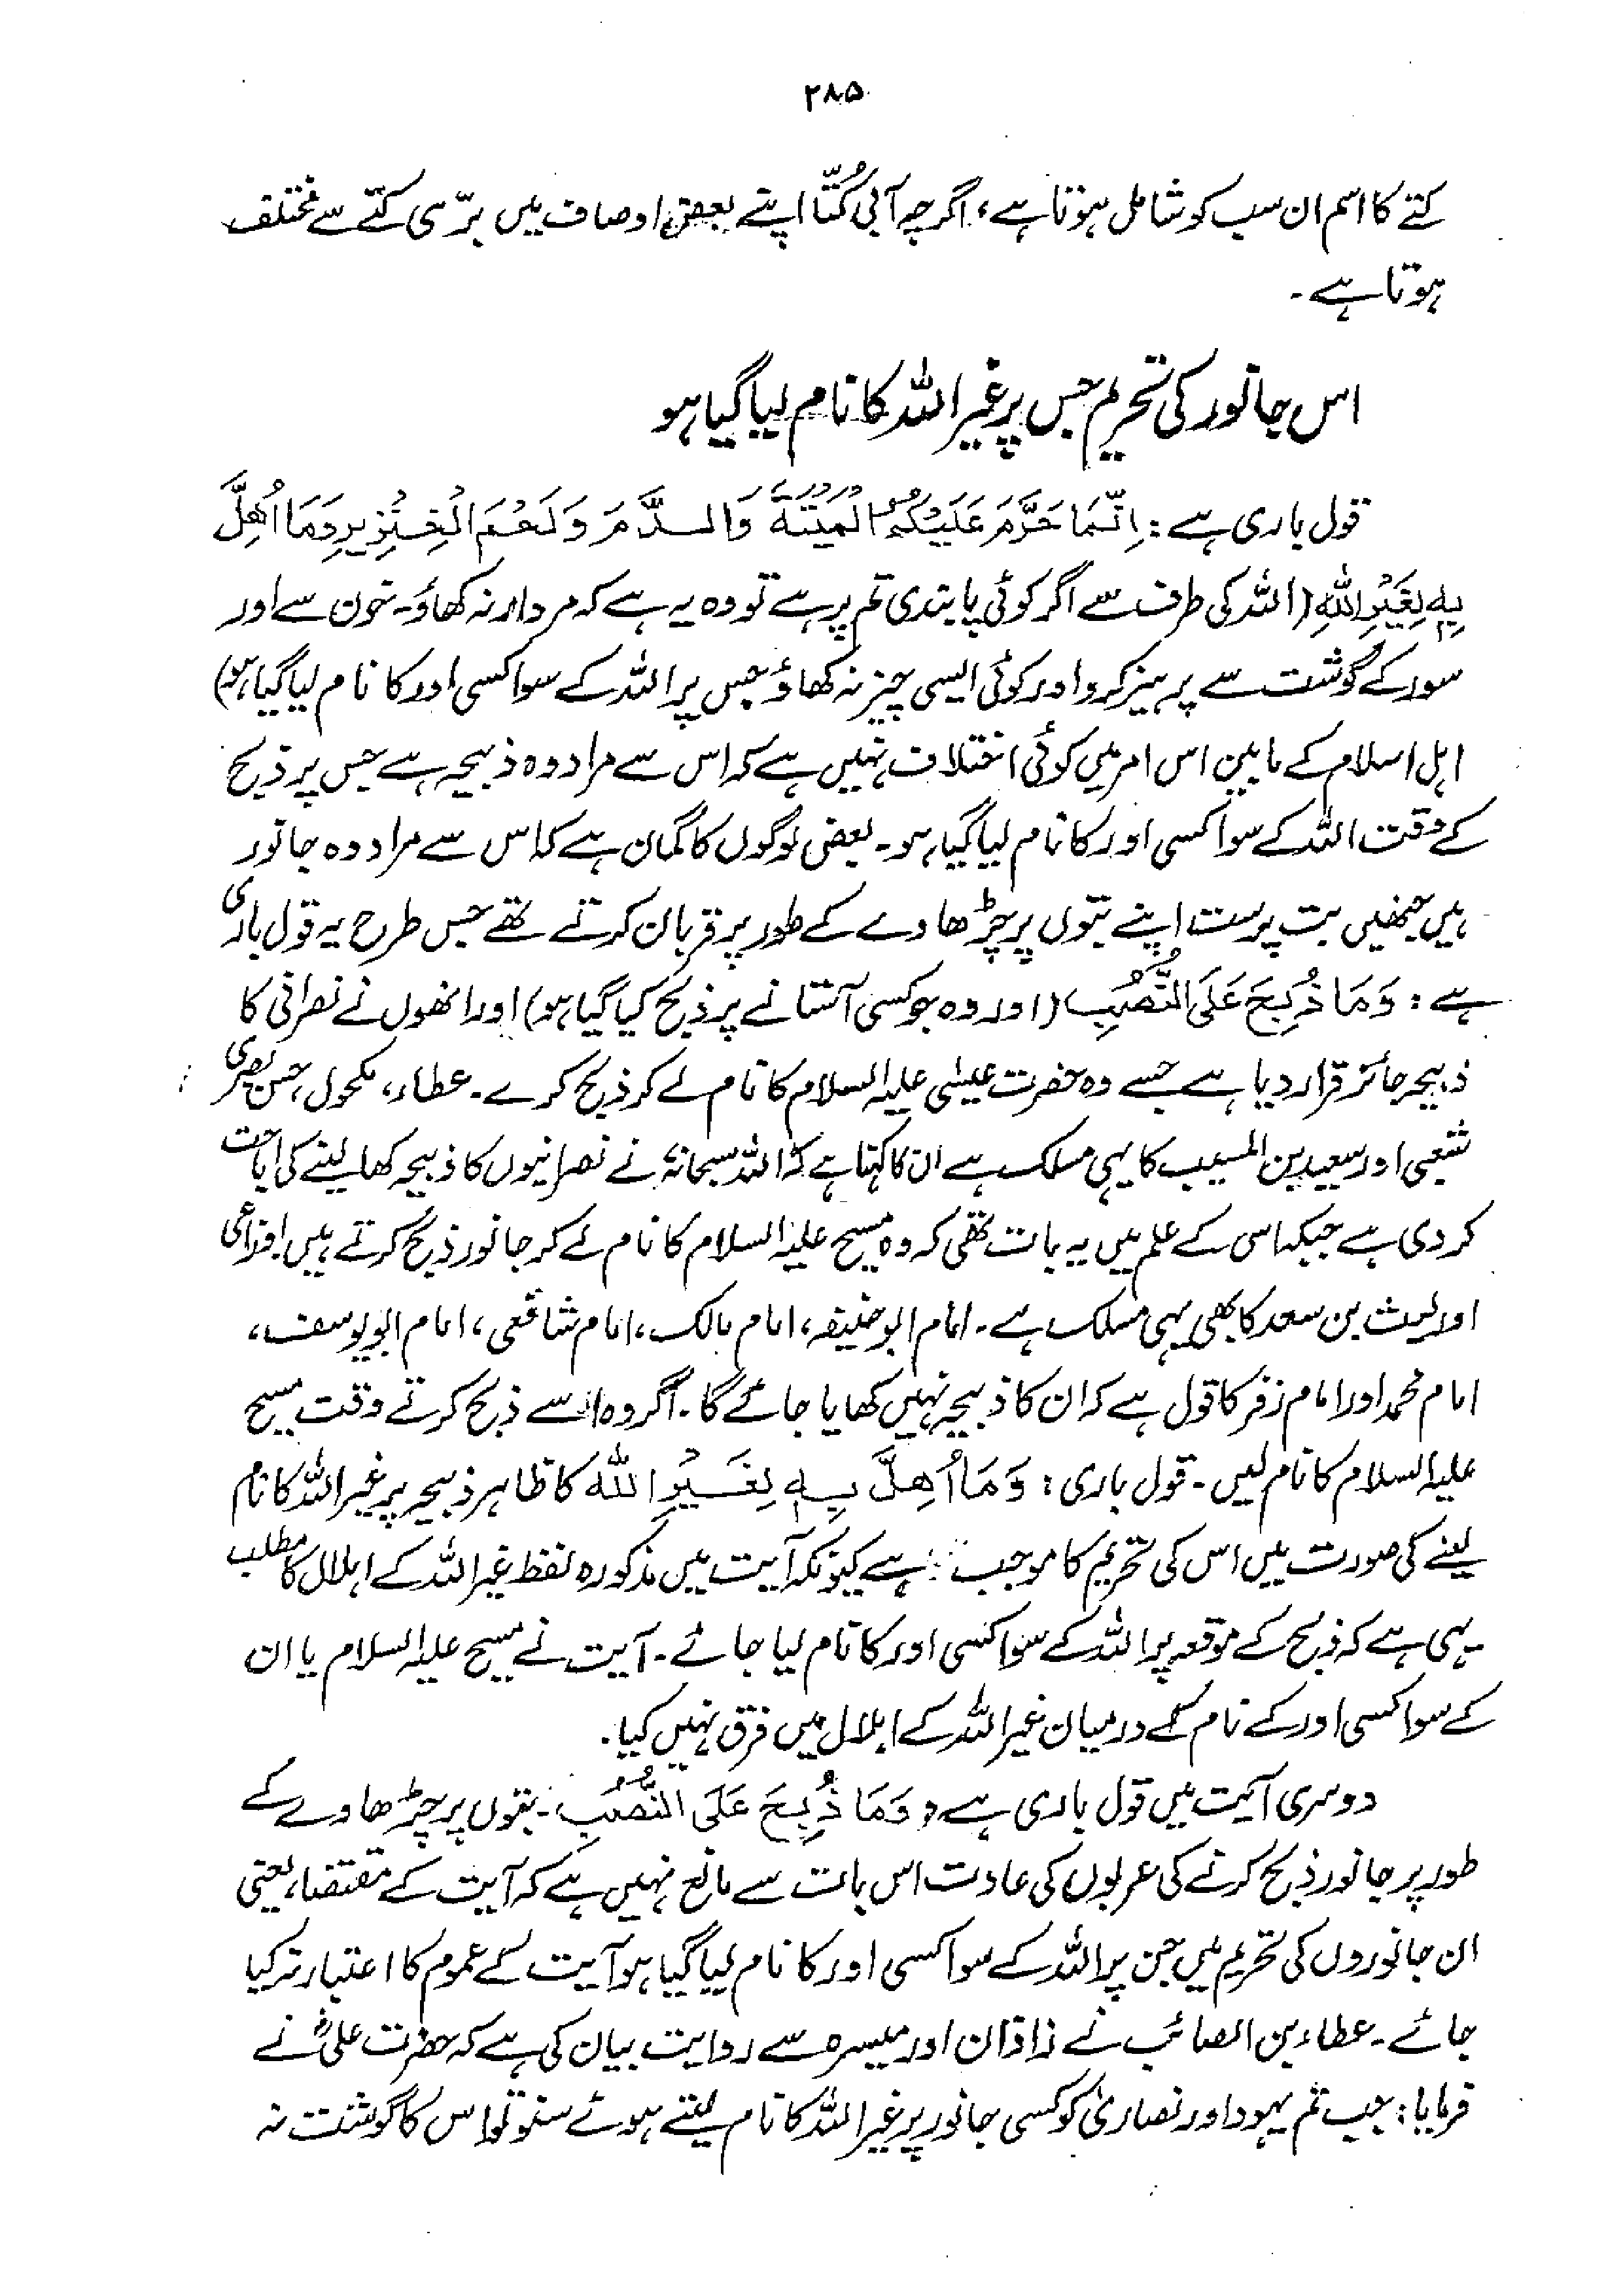 ۲۸۵
کتے کا اسم ان سب کو شامل ہوتا ہے، اگرچہ آبی کُتّا اپنے بعض اوصاف میں برّی کتّے سے مختلف
ہوتا ہے۔
اس جانور کی تحریم جس پر غیر اللہ کا نام لیا گیا ہو
قول باری ہے: اِنَّمَا حَرَّمَ عَلَيْكُمُ الْمَيْتَةَ وَالدَّمَ وَلَحْمَ الْخِنْزِيرِ وَمَا اُهِلَّ
بِهٖ لِغَيْرِ اللّٰهِ (اللہ کی طرف سے اگر کوئی پابندی تم پر ہے تو وہ یہ ہے کہ مردار نہ کھاؤ۔ خون سے اور
سور کے گوشت سے پرہیز کرو اور کوئی ایسی چیز نہ کھاؤ جس پر اللہ کے سوا کسی اور کا نام لیا گیا ہو)
اہل اسلام کے مابین اس امر میں کوئی اختلاف نہیں ہے کہ اس سے مراد وہ ذبیحہ ہے جس پر ذبح
کے وقت اللہ کے سوا کسی اور کا نام لیا گیا ہو۔ بعض لوگوں کا گمان ہے کہ اس سے مراد وہ جانور
ہیں جنھیں بت پرست اپنے بتوں پر چڑھاوے کے طور پر قربان کرتے تھے جس طرح یہ قول باری
ہے: وَمَا ذُبِحَ عَلَى النُّصُبِ (اور وہ جو کسی آستانے پر ذبح کیا گیا ہو) اور انھوں نے نصرانی کا
ذبیحہ جائز قرار دیا ہے جسے وہ حضرت عیسٰی علیہ السلام کا نام لے کر ذبح کرے۔ عطاء، مکحول، حسن بصری
شعبی اور سعید بن المسیب کا یہی مسلک ہے ان کا کہنا ہے کہ اللہ سبحانہٗ نے نصرانیوں کا ذبیحہ کھا لینے کی اباحت
کر دی ہے جبکہ اسی کے علم میں یہ بات تھی کہ وہ مسیح علیہ السلام کا نام لے کر جانور ذبح کرتے ہیں اوزاعی
اور لیث بن سعد کا بھی یہی مسلک ہے۔ امام ابو حنیفہ، امام مالک، امام شافعی، امام ابویوسف،
امام محمد اور امام زفر کا قول ہے کہ ان کا ذبیحہ نہیں کھایا جائے گا۔ اگر وہ اسے ذبح کرتے وقت مسیح
علیہ السلام کا نام لیں۔ قول باری: وَمَا اُهِلَّ بِهٖ لِغَيْرِ اللّٰه کا ظاہر ذبیحہ پر غیر اللہ کا نام
لینے کی صورت میں اس کی تحریم کا موجب ہے کیونکہ آیت میں مذکورہ لفظ غیر اللہ کے اہلال کا مطلب
یہی ہے کہ ذبح کے موقعہ پر اللہ کے سوا کسی اور کا نام لیا جائے۔ آیت نے مسیح علیہ السلام یا ان
کے سوا کسی اور کے نام کے درمیان غیر اللہ کے اہلال میں فرق نہیں کیا۔
دوسری آیت میں قول باری ہے: وَمَا ذُبِحَ عَلَى النُّصُبِ۔ بتوں پر چڑھاوے کے
طور پر جانور ذبح کرنے کی عربوں کی عادت اس بات سے مانع نہیں ہے کہ آیت کے مقتضا، یعنی
ان جانوروں کی تحریم میں جن پر اللہ کے سوا کسی اور کا نام لیا گیا ہو آیت کے عموم کا اعتبار نہ کیا
جائے۔ عطاء بن الصائب نے زاذان اور میسرہ سے روایت بیان کی ہے کہ حضرت علیؓ نے
فرمایا: جب تم یہود اور نصاریٰ کو کسی جانور پر غیر اللہ کا نام لیتے ہوئے سنو تو اس کا گوشت نہ